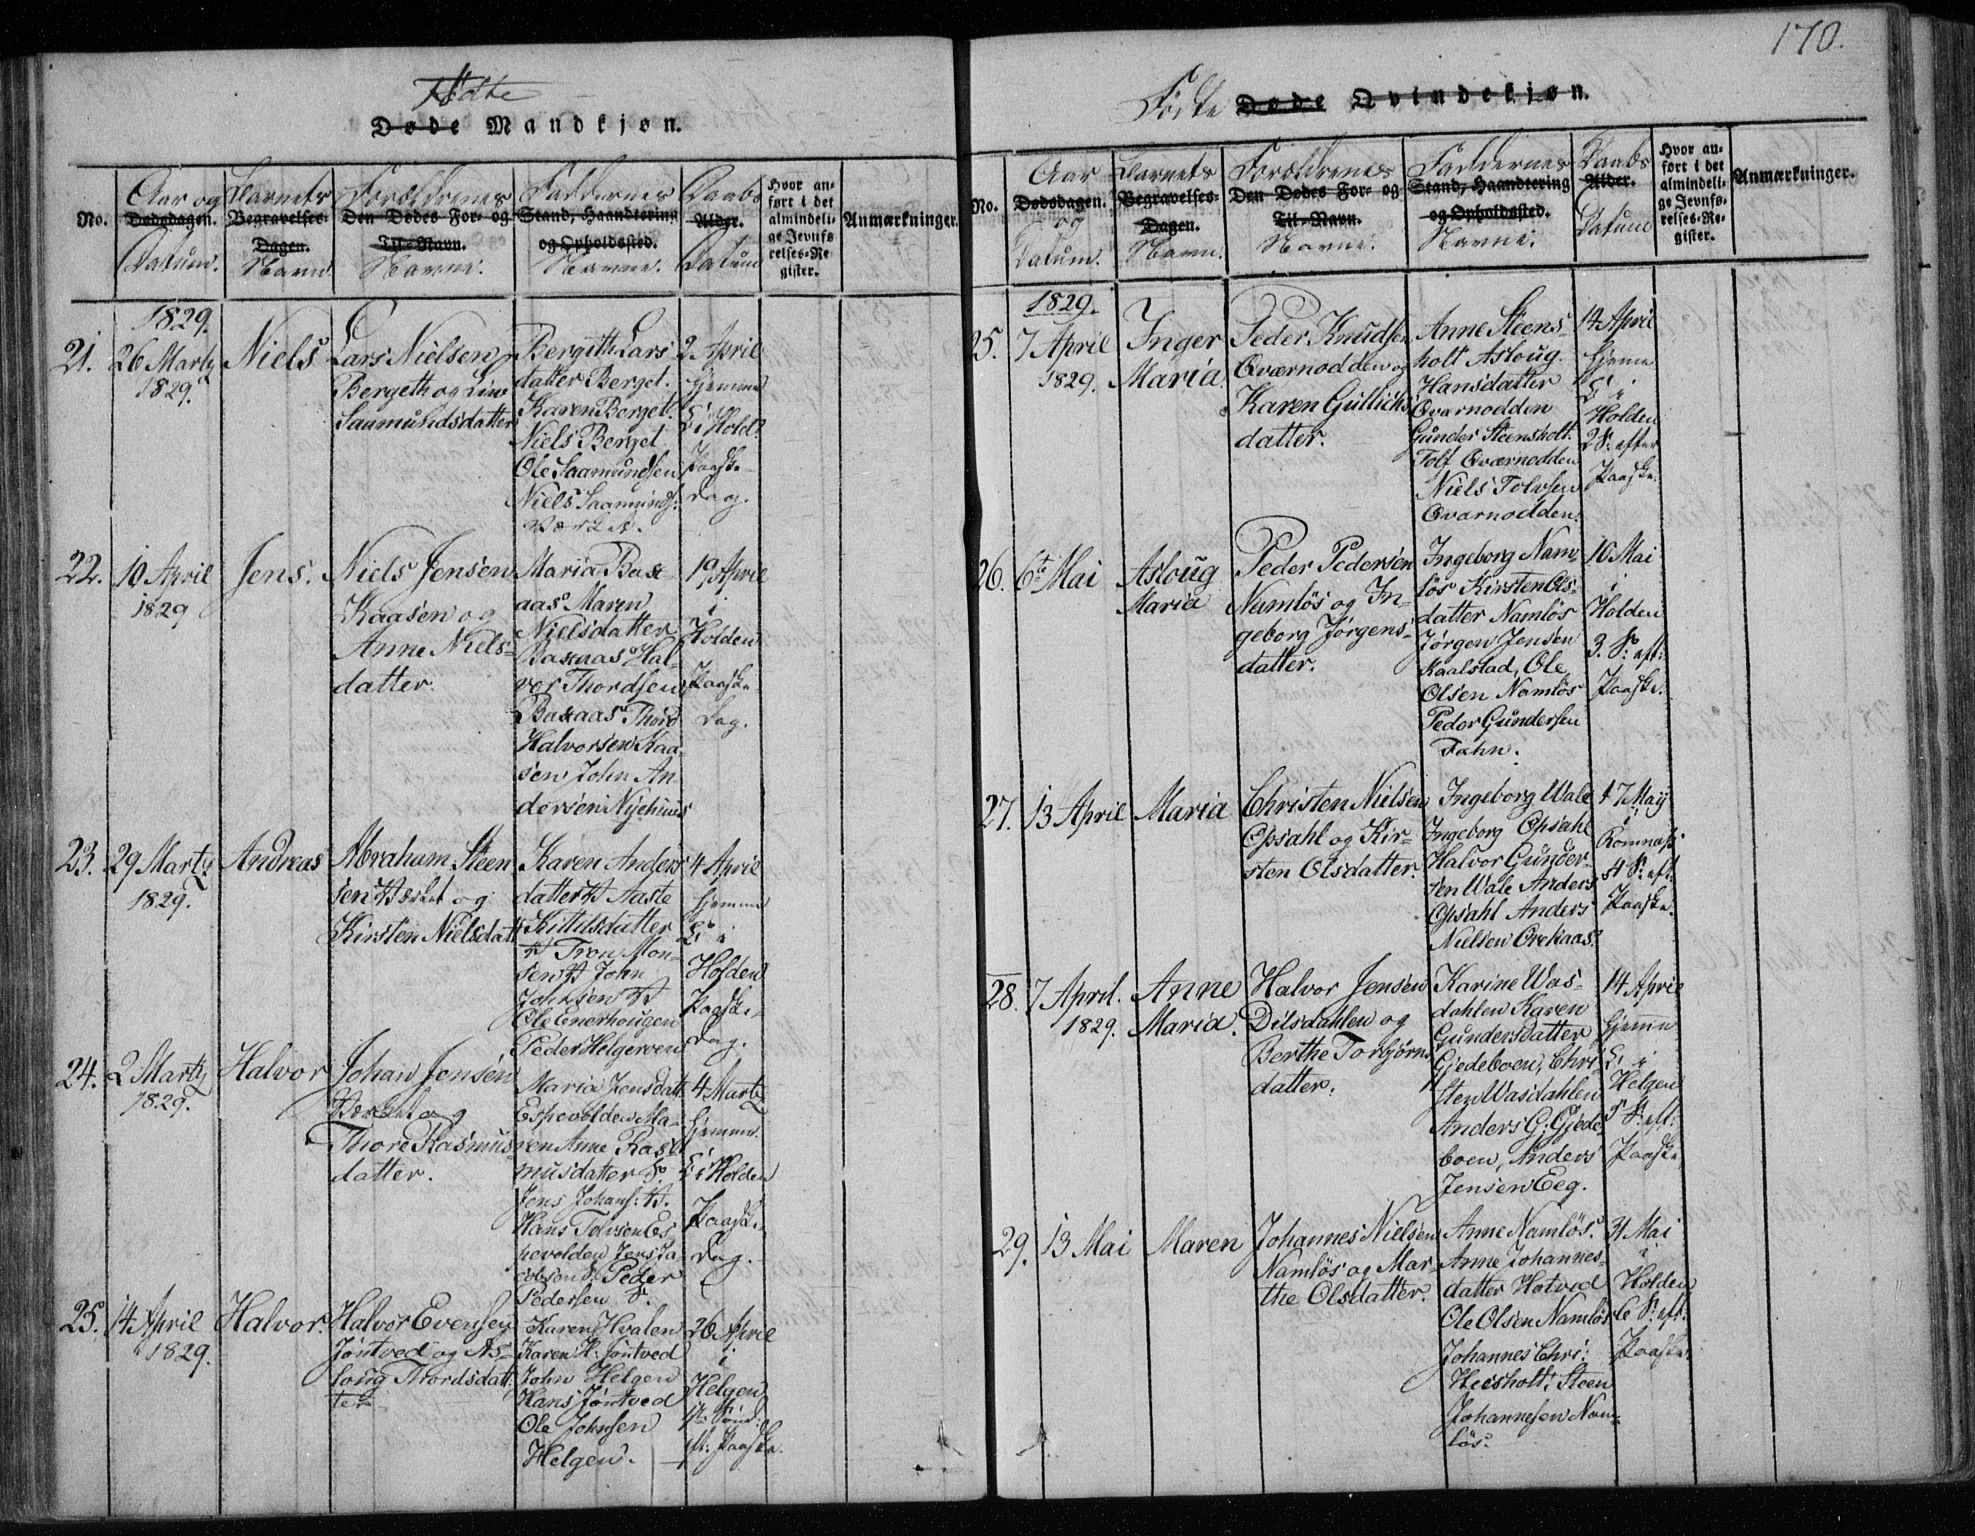 170.
Fødte
Døde Mandkjøn.
No.
Aar og
Dødsdagen.
Datum.
Barnets
Begravelses-
Dagen.
Navn
Forældrenes
Den Dødes For- og
Til-Navn.
Navne.
Faddernes
Stand, Haandtering
og Opholdssted.
Navne.
Daabs
Alder.
Datum
Hvor an-
ført i det
almindeli-
ge Jevnfø
relses-Re-
gister.
Anmærkninger.
1829.
21.
26 Marty
1829.
Niels
Lars Nielsen
Bergeth og Line
Saamundsdatter
Bergith Lars
datter Berget.
Karen Berget.
Niels Berget
Ole Saamundsen
Niels Saamunds:
Værket.
2 April
hjemme
i Hold:
Paaske-
dag.
22.
10 April
1829
Jens.
Niels Jensen
Kaasen og
Anne Niels-
datter.
Maria Bax-
aas Maren
Nielsdatter
Baxaas Hal-
vor Thordsen
Baxaas Thord
Halvorsen Kaa
sen John An-
dersen Nyehuus
19 April
i
Holden
Paaske-
dag.
23.
29 Marty
1829.
Andreas
Abraham Steen
sen Værket og
Kirsten Nielsdatt
Karen Anders
datter V Aaste
Kittilsdatter
V Tron Mon-
sen V John
Johnsen V
Ole Enerhougen
Peder Helgeroen
4 April
hjemme
i
Holden
Paaske-
dag.
24.
2 Marty
1829.
Halvor
Johan Jensen
Værket og
Thore Rasmus
datter.
Maria Jensdatt
Espevolden Ma-
ren Anne Ras
musdatter V.
Jens Johans: V.
Hans Tolvsen Es
pevolden Jens Ja
cobson V. Peder
Pedersen V.
4 Marty
hjemme
i Holden
Paaske-
dag.
25.
14 April
1829.
Halvor.
Halvor Evensen
Jontved og As-
loug Thordsdatt
ter
Karen Hvalen
Karen H. Jontved
John Helgen
Hans Jontved
Ole Johnsen
Helgen.
26 April
i
Helgen
1ste Sønd:
eft. Paaske.
Fødte Døde Qvindekjøn.
No.
Aar
Dødsdagen.
og
Datum.
Barnets
Begravelses-
Dagen.
Navn.
Forældrenes
Den Dødes For- og
Til-Navn.
Navne.
Faddernes
Stand, Haandtering
og Opholdssted.
Navne.
Daabs
Alder.
Datum
Hvor an-
ført i det
almindeli-
ge Jevnfø-
relses-Re-
gister.
Anmærkninger.
1829.
25.
7 April
1829.
Inger
Maria
Peder Knudsen
Qværnodden og
Karen Gullichs
datter.
Anne Steens
holt Asloug
Hansdatter
Qvarnodden
Gunder Steensholt.
Tolf Qværnodden
Niels Tolvsen
Qvarnodden.
14 April
hjeme
i
Holden
2 S. efter
Paaske.
26.
6te Mai
Asloug
Maria
Peder Pedersen
Namløs og In-
geborg Jørgens-
datter.
Ingeborg Nam-
løs Kirsten Ols-
datter Namløs
Jørgen Jensen
Kaalstad, Ole
Olsen Namløs
Peder Gundersen
Fahn.
10 Mai
i
Holden
3. S. eft:
Paaske.
27.
13 April
Maria
Christen Nielsen
Opsahl og Kir-
sten Olsdatter.
Ingeborg Wale
Ingeborg Opsahl
Halvor Gunder-
sen Wale Anders
Opsahl Anders
Nielsen Orekaas.
17 Maÿ
i
Romnæs
4 S. eft.
Paaske.
28.
7 April.
1829.
Anne
Maria.
Halvor Jensen
Dilsdahlen og
Berthe Torbjørns
datter.
Karine Was-
dahlen Karen
Gundersdatter
Gjedeboen, Chri-
sten Wasdahlen
Anders G: Gjede-
boen, Anders
Jensen Eeg.
14 April
hjeme
i
Helgen
5 S. eft.
Paaske
29.
13 Mai
Maren
Johannes Nielsen
Namløs og Mar-
the Olsdatter.
Anne Namløs.
Anne Johannes-
datter Hotved
Ole Olsen Namløs
Johannes Chri:
Heisholt, Steen
Johannesen Nam-
løs.
31 Mai
i
Holden
6 S. eft.
Paaske